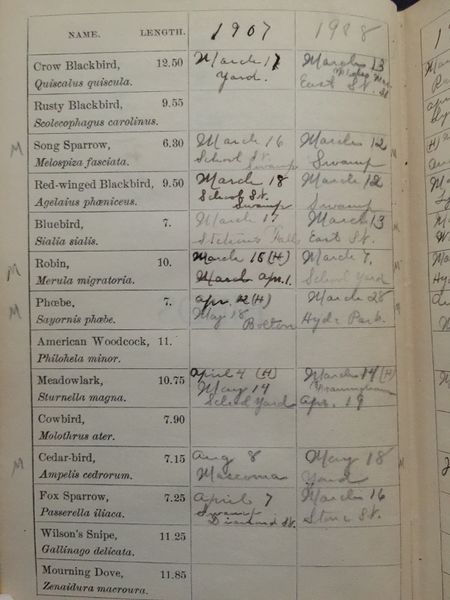 NAME. LENGTH. 1907 1908
Crow Blackbird, 12.50 March 17 March 13
Quiscalus quiscula. Yard. East St.
Rusty Blackbird, 9.55
Scolecophagus carolinus.
M Song Sparrow, 6.30 March 16 March 12 M
Melospiza fasciata. School St. Swamp Swamp
Red-winged Blackbird, 9.50 March 18 March 12
Agelaius phœniceus. School St. Swamp Swamp
Bluebird, 7. March 17 March 13
Sialia sialis. Falls East St.
M Robin, 10. March 18 (H) March 7,
Merula migratoria. March Apr. 1. School Yard
M Phœbe, 7. Apr. 2 (H) March 28
Sayornis phœbe. May 18 Bolton Hyde Park.
American Woodcock, 11.
Philohela minor.
Meadowlark, 10.75 April 4 (H) March 14 (H)
Sturnella magna. May 14 Framingham
School Yard Apr. 19
Cowbird, 7.90
Molothrus ater.
M Cedar-bird, 7.15 Aug 8 May 18 M
Ampelis cedrorum. Mascoma Yard
Fox Sparrow, 7.25 April 7 March 16
Passerella iliaca. Swamp Stone St.
Diamond St.
Wilson's Snipe, 11.25
Gallinago delicata.
Mourning Dove, 11.85
Zenaidura macroura.